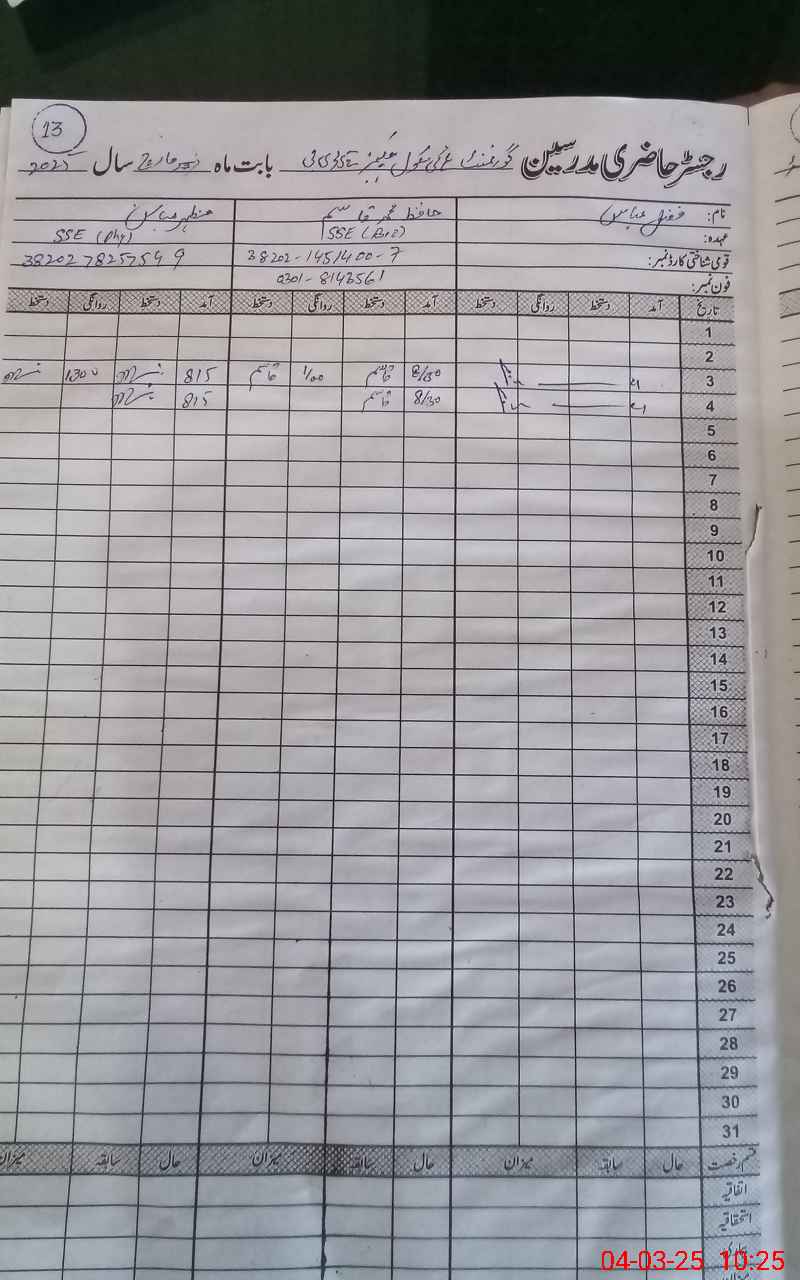 13
رجسٹر حاضری مدرسین گورنمنٹ ہائی سکول بابت ماہ مارچ سال 2025
نام: فضل عباس حافظ محمد قاسم منظہر عباس
عہدہ: SSE (Bio) SSE (Phy)
قومی شناختی کارڈ نمبر: 38202-1451400-7 3820278257549
فون نمبر: 0301-8143561
تاریخ آمد دستخط روانگی دستخط آمد دستخط روانگی دستخط آمد دستخط روانگی دستخط
1
2
3 8/30 قاسم 1/00 قاسم 815 1300
4 8/30 قاسم 815
5
6
7
8
9
10
11
12
13
14
15
16
17
18
19
20
21
22
23
24
25
26
27
28
29
30
31
قسم رخصت حال سابقہ میزان حال سابقہ میزان حال سابقہ میزان
اتفاقیہ
استحقاقیہ
بیماری
میزان
04-03-25 10:25